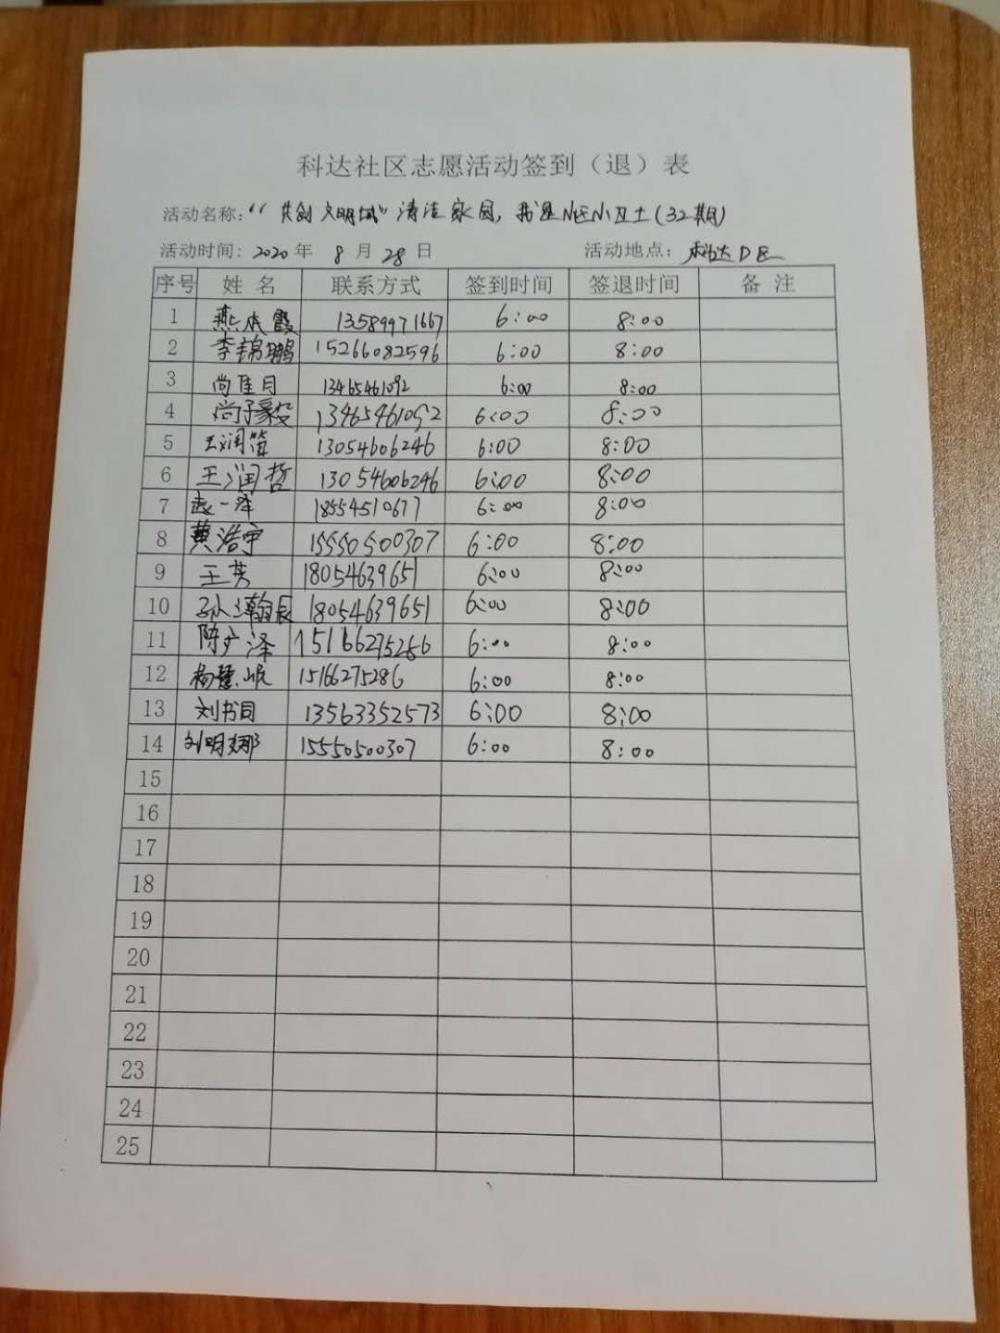 科达社区志愿活动签到（退）表
活动名称：“共创文明城”清洁家园，我是小区小卫士（32期）
活动时间：2020年 8月28日 活动地点：科达D区
序号 姓名 联系方式 签到时间 签退时间 备注
1 燕成霞 13589971667 6:00 8:00
2 李锦鹏 15266082596 6:00 8:00
3 尚佳月 13465461092 6:00 8:00
4 尚子毅 13465461092 6:00 8:00
5 王润笛 13054606246 6:00 8:00
6 王润哲 13054606246 6:00 8:00
7 袁一泽 18554510677 6:00 8:00
8 黄浩宇 15550500307 6:00 8:00
9 王芳 18054639651 6:00 8:00
10 孙瀚辰 18054639651 6:00 8:00
11 陈广泽 15166275286 6:00 8:00
12 杨慧岷 15166275286 6:00 8:00
13 刘书同 13563352573 6:00 8:00
14 刘明娜 15550500307 6:00 8:00
15
16
17
18
19
20
21
22
23
24
25